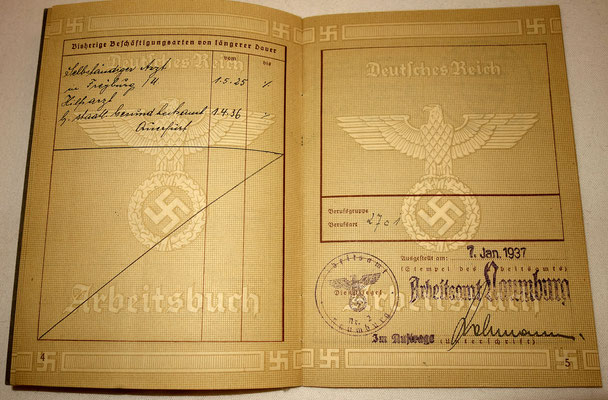 Bisherige Beschäftigungsarten von längerer Dauer
vom bis
Deutsches Reich
Selbständiger Arzt
in Freyburg /U 1.5.25
Hilfsarzt
b. staatl. Gesundheitsamt 1.4.36
Querfurt
Arbeitsbuch
4
Deutsches Reich
Berufsgruppe
Berufsart 27c1
Ausgestellt am: 7. Jan. 1937
(Stempel des Arbeitsamts)
Arbeitsamt Naumburg
Arbeitsamt
Naumburg
Arbeitsbuch
Im Auftrage
(Unterschrift)
5